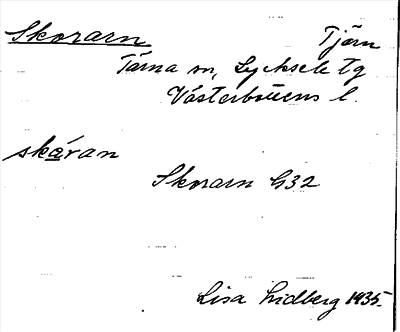 Skorarn Tjärn
Tärna sn, Lycksele tg
Västerbottens l.
skåran
Skorarn G32
Lisa Lidberg 1935.